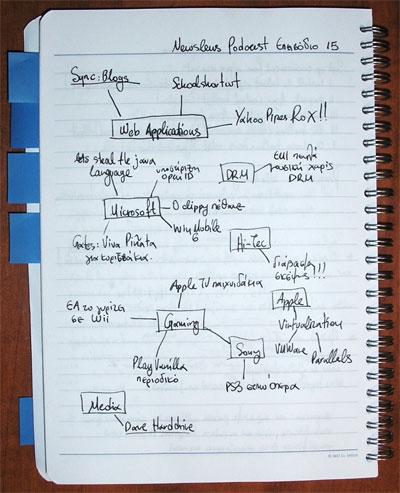 Newsleus Podcast Επεισόδιο 15
Sync: Blogs
Schoolshortcut
Yahoo Pipes RoX!!
Web Applications
lets steal the java
language
υποστήριξη
open ID
DRM
EMI πουλά
μουσική χωρίς
DRM
Microsoft
Ο clippy πέθανε
Win Mobile
6
Gates: Viva Piñata
για κοριτσάκια
Hi-Tec
διάβαση
σκέψης!!!
Apple TV παιχνιδάκια
Apple
EA το γυρίζει
σε Wii
Gaming
Virtualization
VMWare
Parallels
Sony
PlayVanilla
περιοδικό
PS3
Media
Dave Harddrive